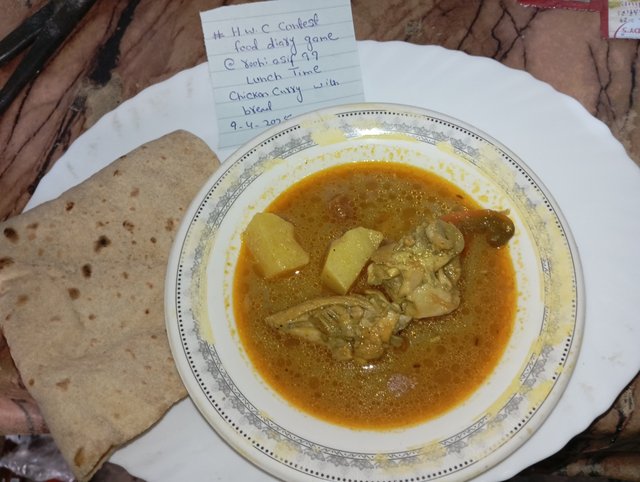 # H.W.C Contest
food diary game
@ roohiasif99
Lunch Time
Chicken Curry with
bread
9-4-2025